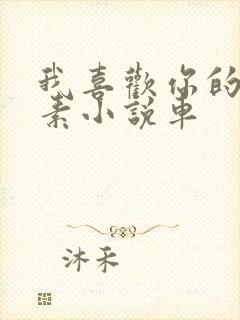 我喜歡你的
素小說車
沐禾